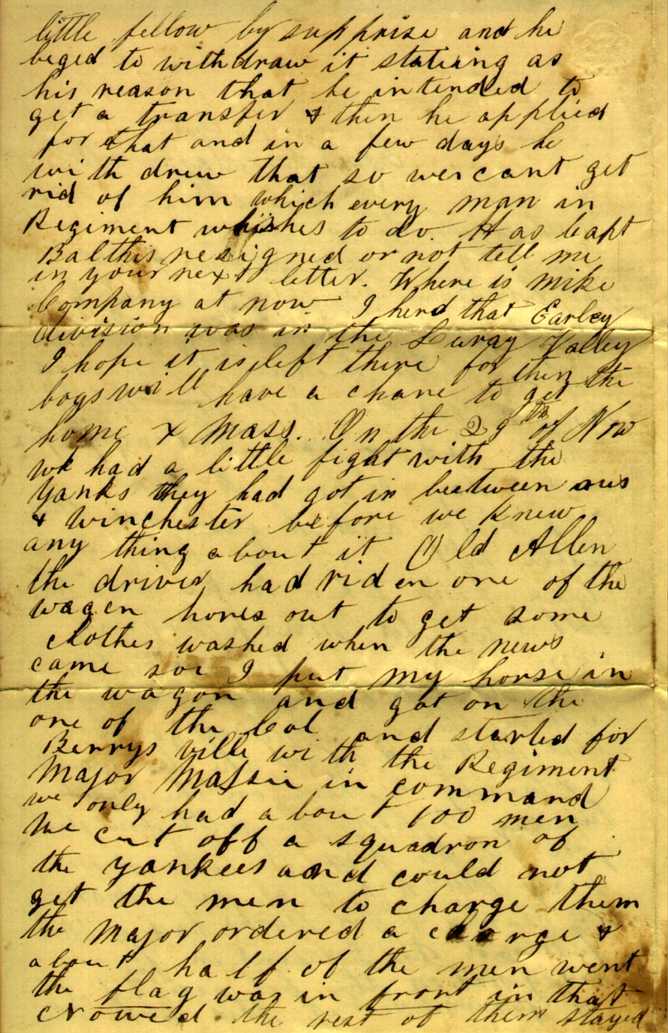 little fellow by supprise and he
beged to withdraw it stateing as
his reason that he intended to
get a transfer & then he applied
for that and in a few days he
with drew that so we cant get
rid of him which every man in
Regiment whishes to do. Has Capt
Balthis resigned or not tell me
in your next letter. Where is mike
Company at now I herd that Earley
division was in the Luray Valley
I hope it is left there for then the
boys will have a chane to get
home & Mass. On the 29th of Nov
we had a little fight with the
Yanks they had got in between us
& winchester before we knew
any thing about it Old Allen
the driver had riden one of the
wagen horses out to get some
clothes washed when the news
came so I put my horse in
the wagon and got on the
one of the Col and started for
Berrys ville with the Regiment
Major Massie in command
we only had about 100 men
We cut off a squadron of
the yankees and could not
get the men to charge them
the Major ordered a charge &
about half of the men went
the flag was in front in that
crowed the rest of them stayed